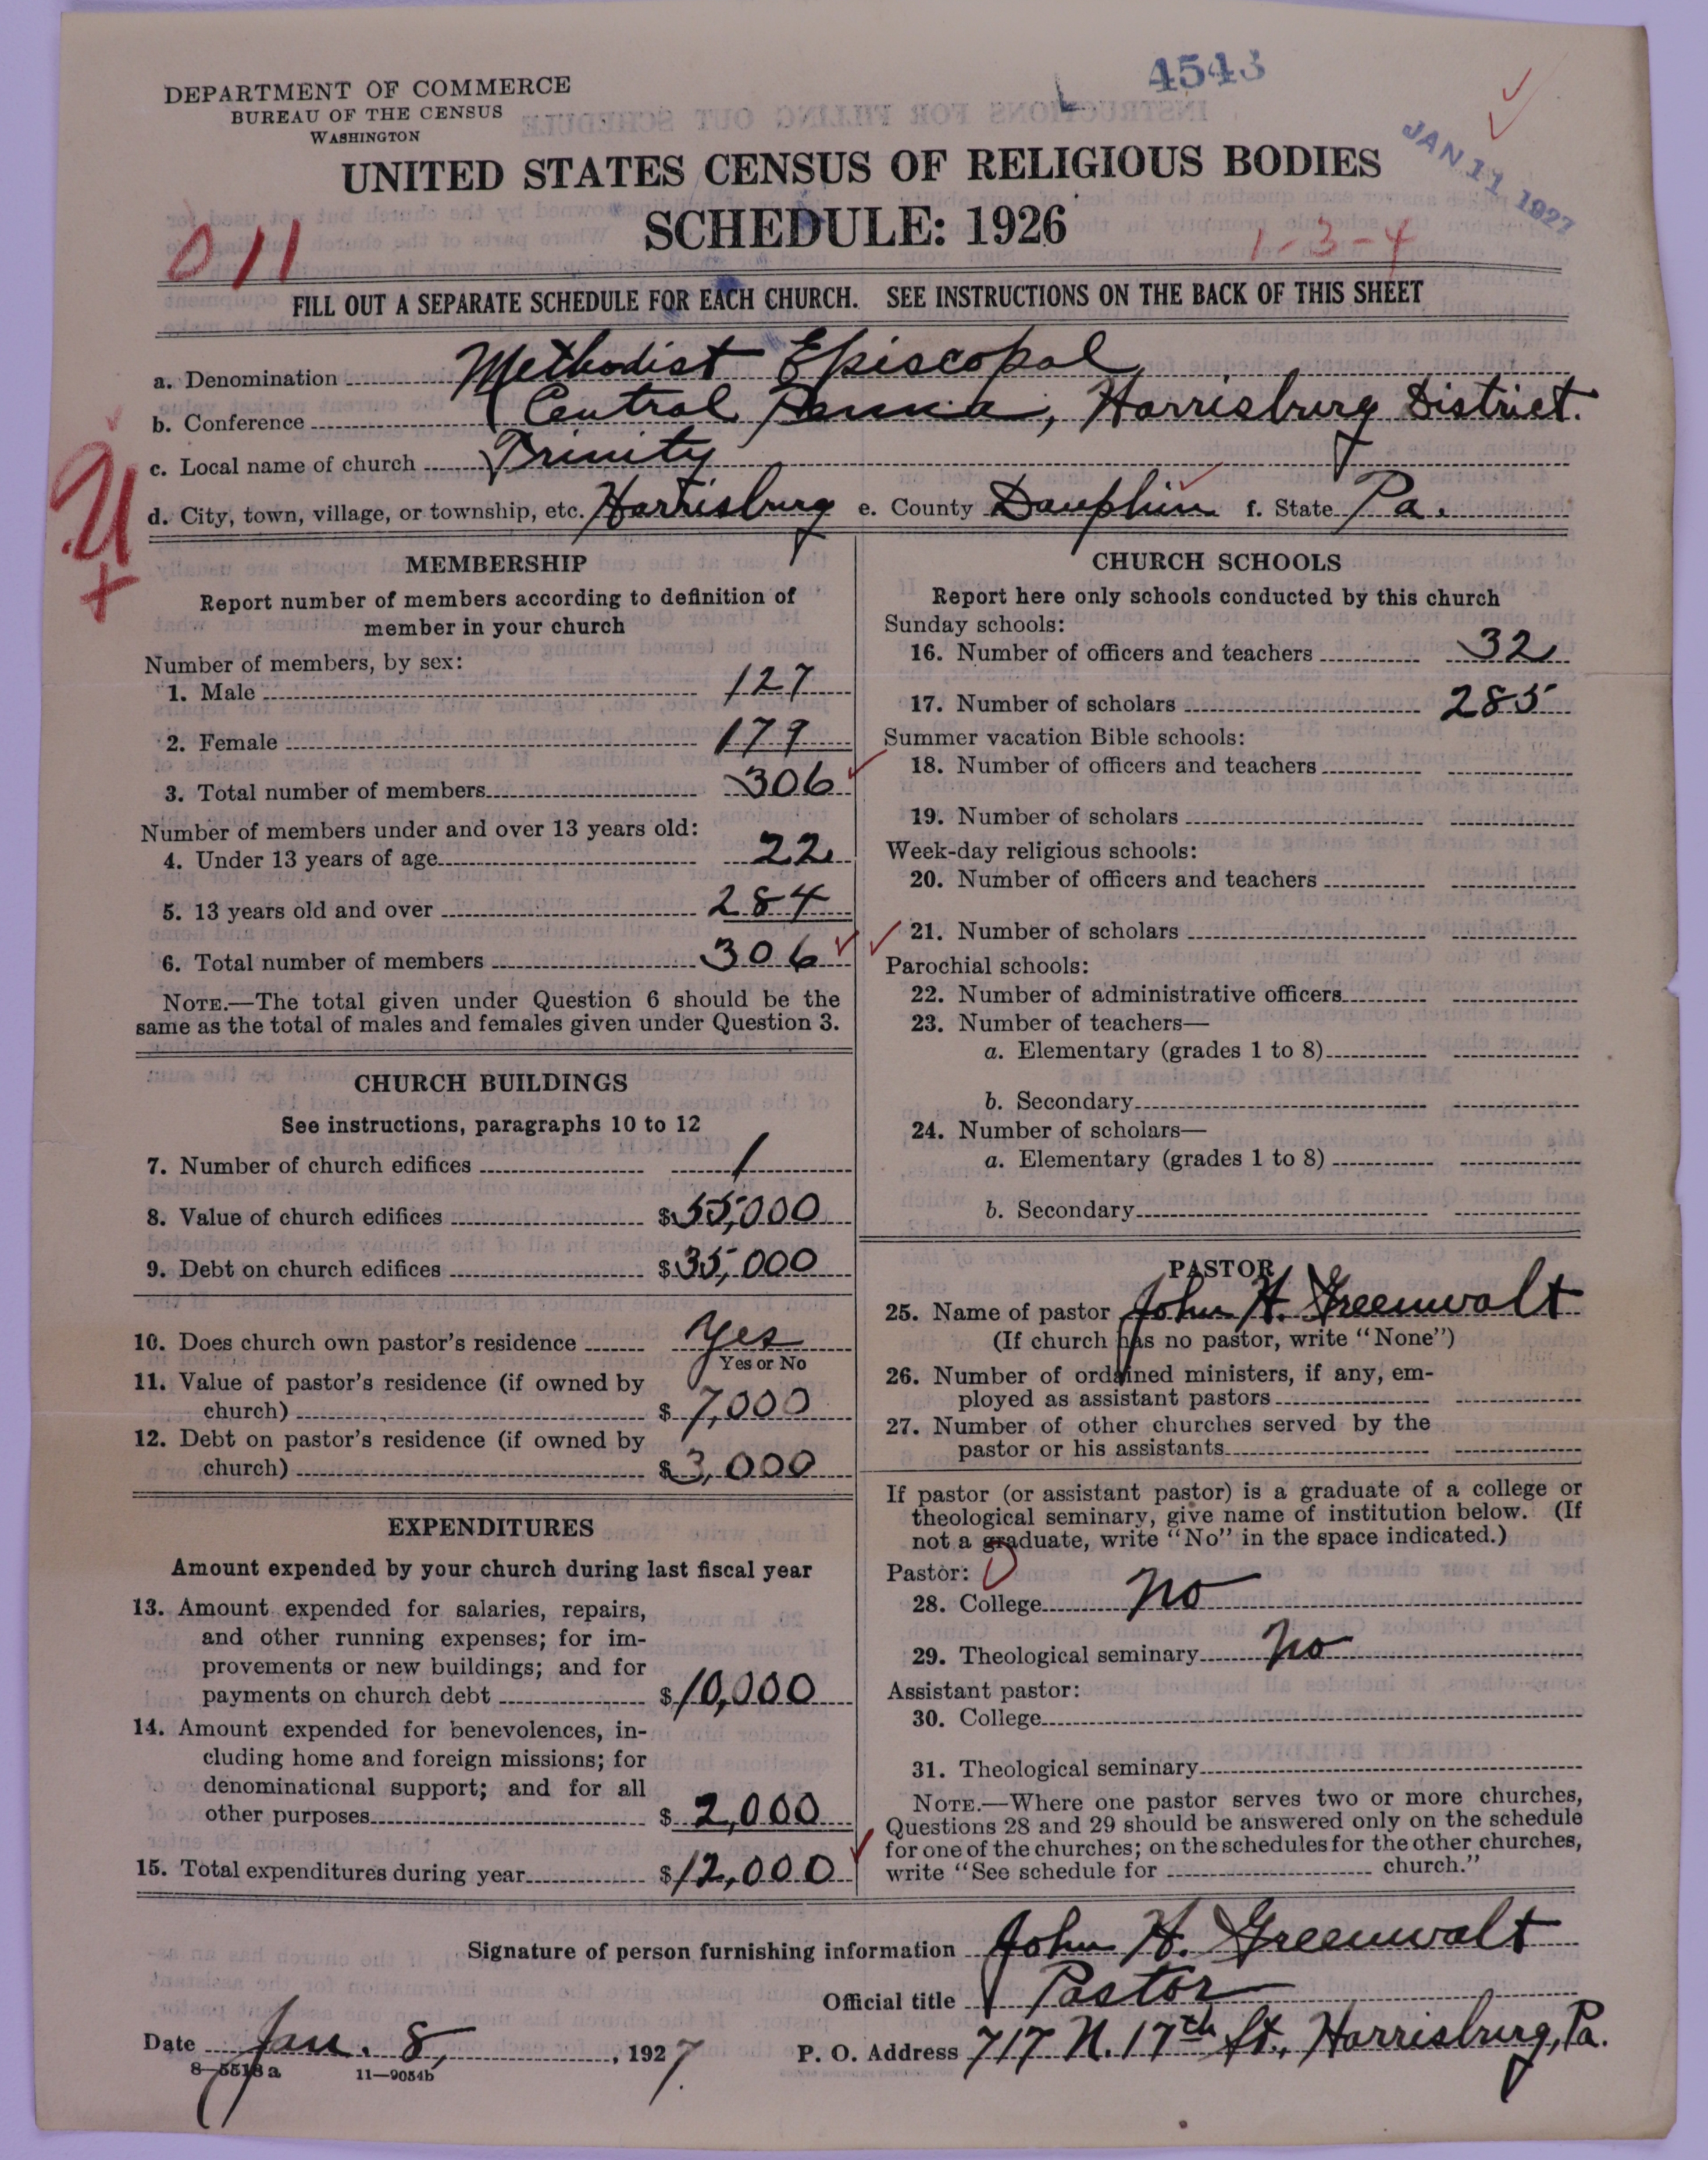 4543
DEPARTMENT OF COMMERCE
BUREAU OF THE CENSUS
WASHINGTON
JAN 11 1927
UNITED STATES CENSUS OF RELIGIOUS BODIES
SCHEDULE: 1926
011
1-3-4
FILL OUT A SEPARATE SCHEDULE FOR EACH CHURCH. SEE INSTRUCTIONS ON THE BACK OF THIS SHEET
a. Denomination Methodist Episcopal
b. Conference Central Penna, Harrisburg District.
c. Local name of church Trinity
d. City, town, village, or township, etc. Harrisburg e. County Dauphin f. State Pa.
MEMBERSHIP
Report number of members according to definition of
member in your church
Number of members, by sex:
1. Male 127
2. Female 179
3. Total number of members 306
Number of members under and over 13 years old:
4. Under 13 years of age 22
5. 13 years old and over 284
6. Total number of members 306
NOTE.—The total given under Question 6 should be the
same as the total of males and females given under Question 3.
CHURCH BUILDINGS
See instructions, paragraphs 10 to 12
7. Number of church edifices 1
8. Value of church edifices $55,000
9. Debt on church edifices $35,000
10. Does church own pastor's residence yes
Yes or No
11. Value of pastor's residence (if owned by
church) $7,000
12. Debt on pastor's residence (if owned by
church) $3,000
EXPENDITURES
Amount expended by your church during last fiscal year
13. Amount expended for salaries, repairs,
and other running expenses; for im-
provements or new buildings; and for
payments on church debt $10,000
14. Amount expended for benevolences, in-
cluding home and foreign missions; for
denominational support; and for all
other purposes $2,000
15. Total expenditures during year $12,000
CHURCH SCHOOLS
Report here only schools conducted by this church
Sunday schools:
16. Number of officers and teachers 32
17. Number of scholars 285
Summer vacation Bible schools:
18. Number of officers and teachers
19. Number of scholars
Week-day religious schools:
20. Number of officers and teachers
21. Number of scholars
Parochial schools:
22. Number of administrative officers
23. Number of teachers—
a. Elementary (grades 1 to 8)
b. Secondary
24. Number of scholars—
a. Elementary (grades 1 to 8)
b. Secondary
PASTOR
25. Name of pastor John H. Greenwalt
(If church has no pastor, write "None")
26. Number of ordained ministers, if any, em-
ployed as assistant pastors
27. Number of other churches served by the
pastor or his assistants
If pastor (or assistant pastor) is a graduate of a college or
theological seminary, give name of institution below. (If
not a graduate, write "No" in the space indicated.)
Pastor:
28. College no
29. Theological seminary no
Assistant pastor:
30. College
31. Theological seminary
NOTE.—Where one pastor serves two or more churches,
Questions 28 and 29 should be answered only on the schedule
for one of the churches; on the schedules for the other churches,
write "See schedule for church."
Signature of person furnishing information John H. Greenwalt
Official title Pastor
Date Jan. 8, 1927. P. O. Address 717 N. 17th St., Harrisburg, Pa.
8—5518a 11—9054b